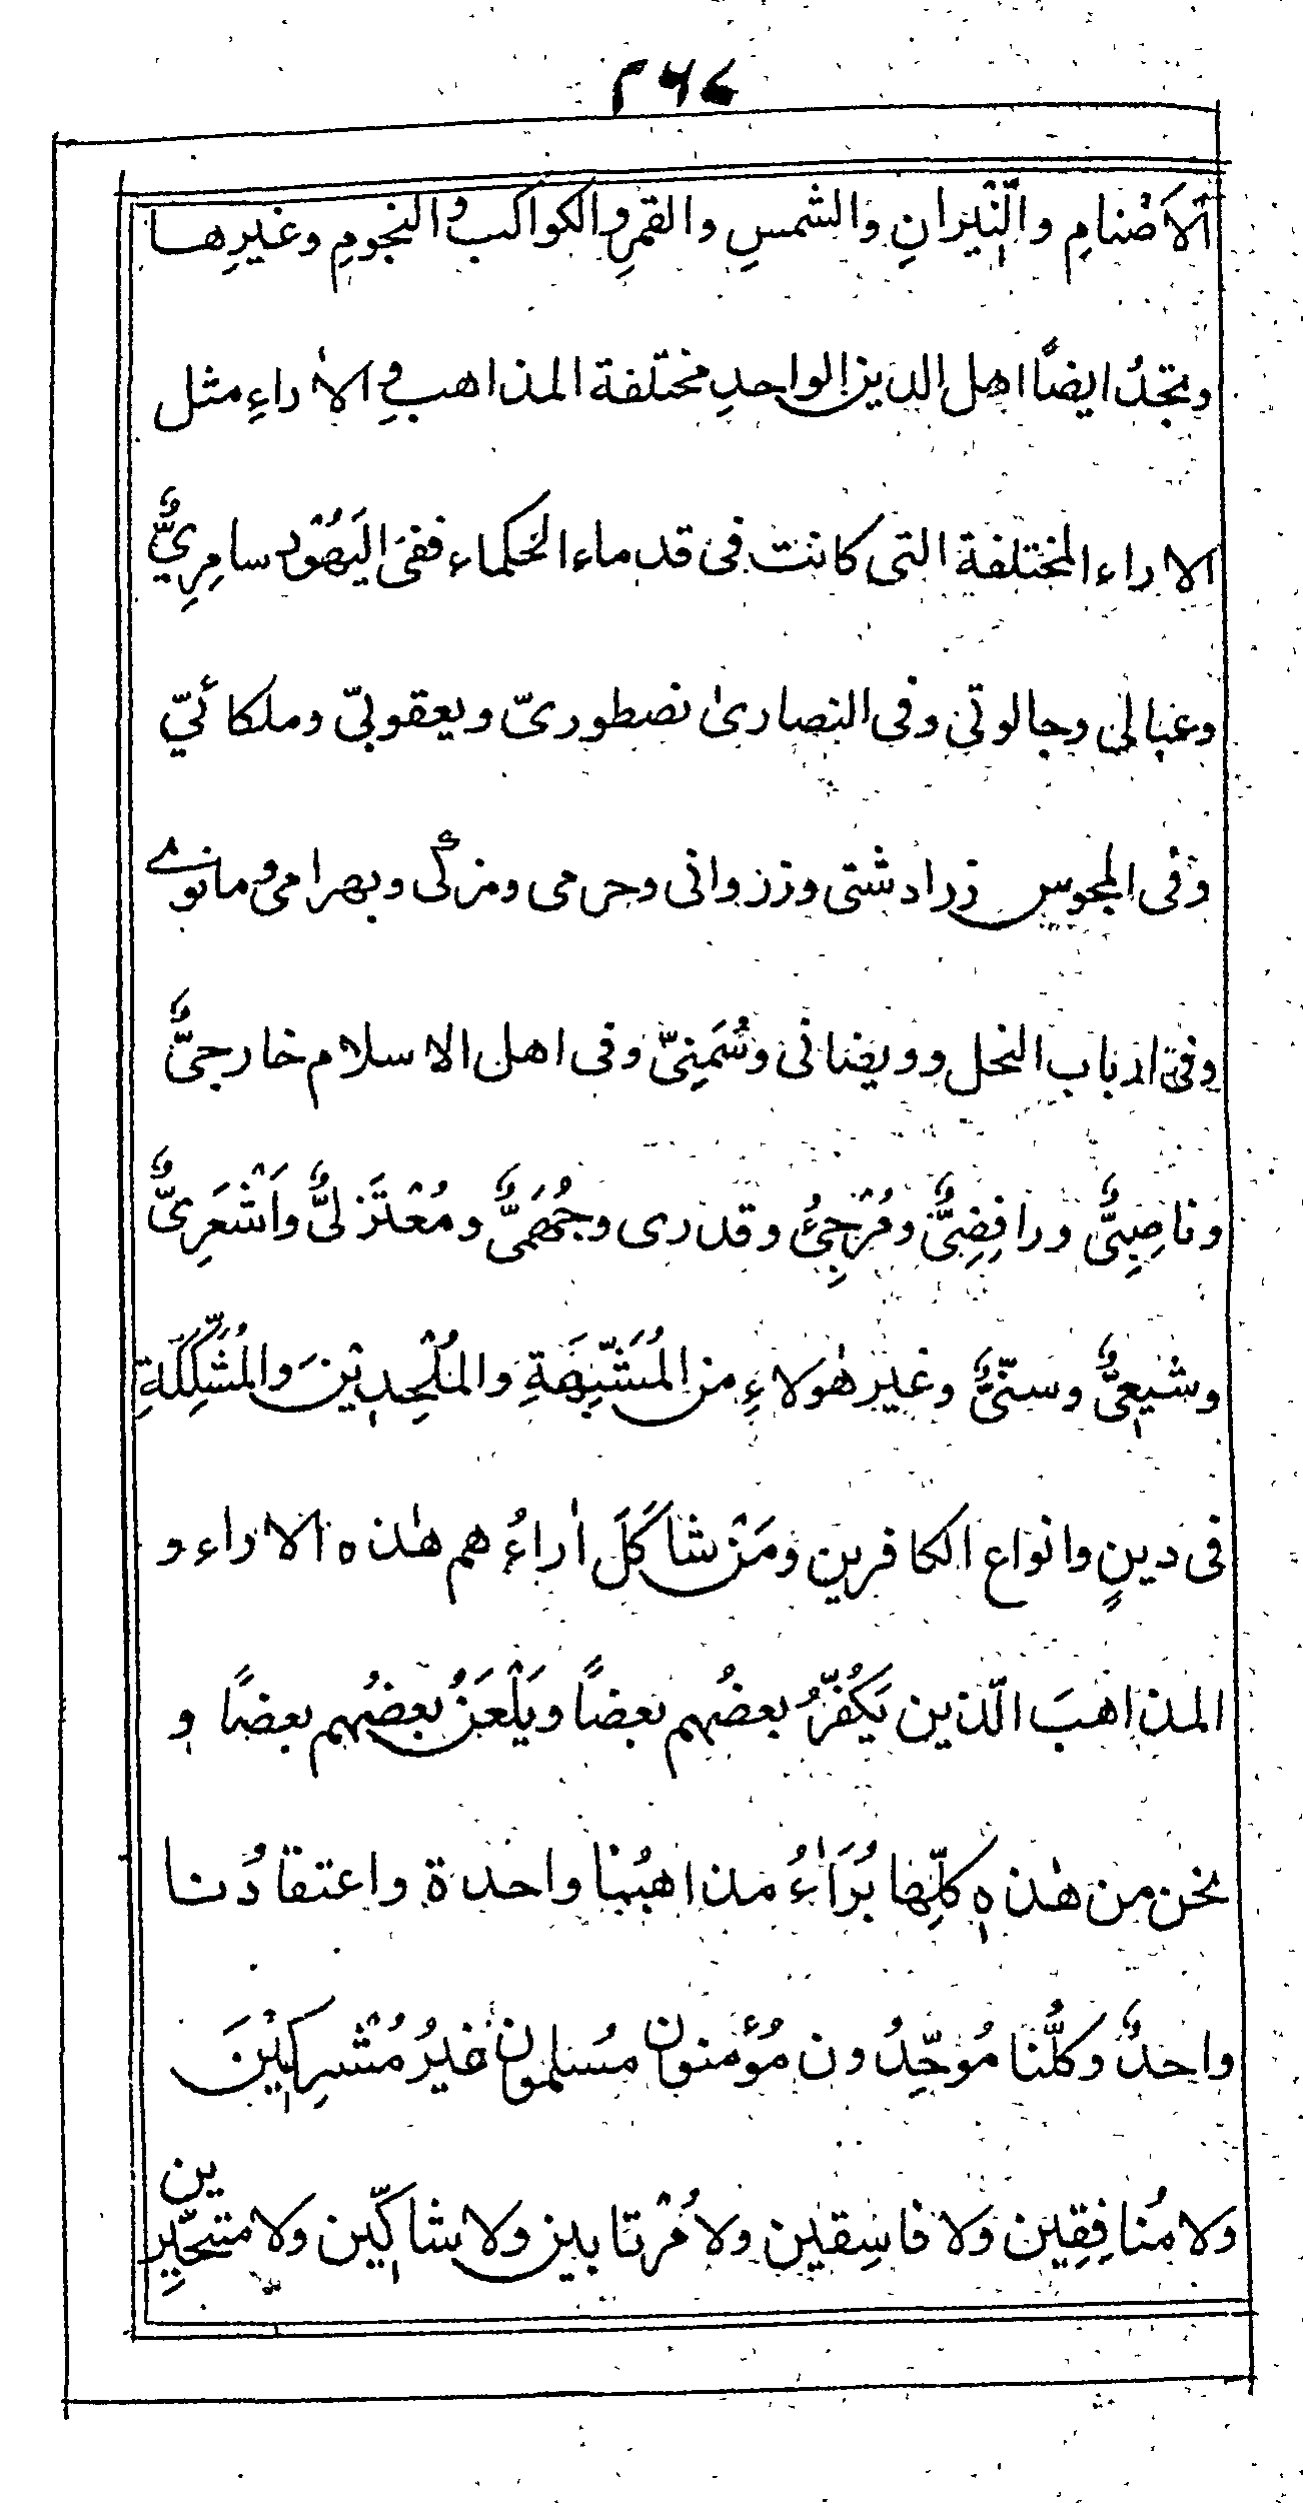 ۲۶۷
الاَصْنامِ والنّيْرانِ والشمسِ والقمرِ والكواكب والنجومِ وغيرِها
وتجدُ ايضاً اهل الدين الواحدِ مختلفة المذاهب و الاٰراءِ مثل
الاراء المختلفة التى كانت فى قدماء الحكماء ففى اليَهُوْد سامِرِيٌّ
وعبالى وجالوتى وفى النصارىٰ نصطورىّ ويعقوبىّ وملكائيّ
وفى المجوس زرادشتى وزرزوانى وحرمى ومزكى وبهرامى و مانوے
وفى ارباب النحل وويغنانى وسُمَنِىّ وفى اهل الاسلام خارجىٌّ
وناصِبِىٌّ ورافِضِىٌّ ومُرْجِئُ وقدرى وجُهَمىٌّ ومُعْتَزلىٌّ واَشْعَرِىٌّ
وشيعىٌّ وسنّىٌّ وغير هٰولاءِ من المُشَبِّهَةِ والمُلْحِدِيْنَ والمُشَكِّكَةِ
فى دينٍ وانواع الكافرين ومَنْ شاكَلَ اٰراءُهم هٰذه الاراء و
المذاهبَ الّذين يَكُفّرُ بعضُهم بعضاً ويَلْعَنُ بعضُهم بعضًا و
نحن من هٰذه كلِّها بُرَاٰءُ مذاهبُنا واحدة واعتقادُنا
واحدٌ وكلُّنا مُوَحِّدُون مُؤمنون مُسلمون غيرُ مُشْرِكِيْنَ
ولا مُنافِقِين ولا فاسِقين ولا مُرْتابين ولا شاكِّين ولا متحيِّرين